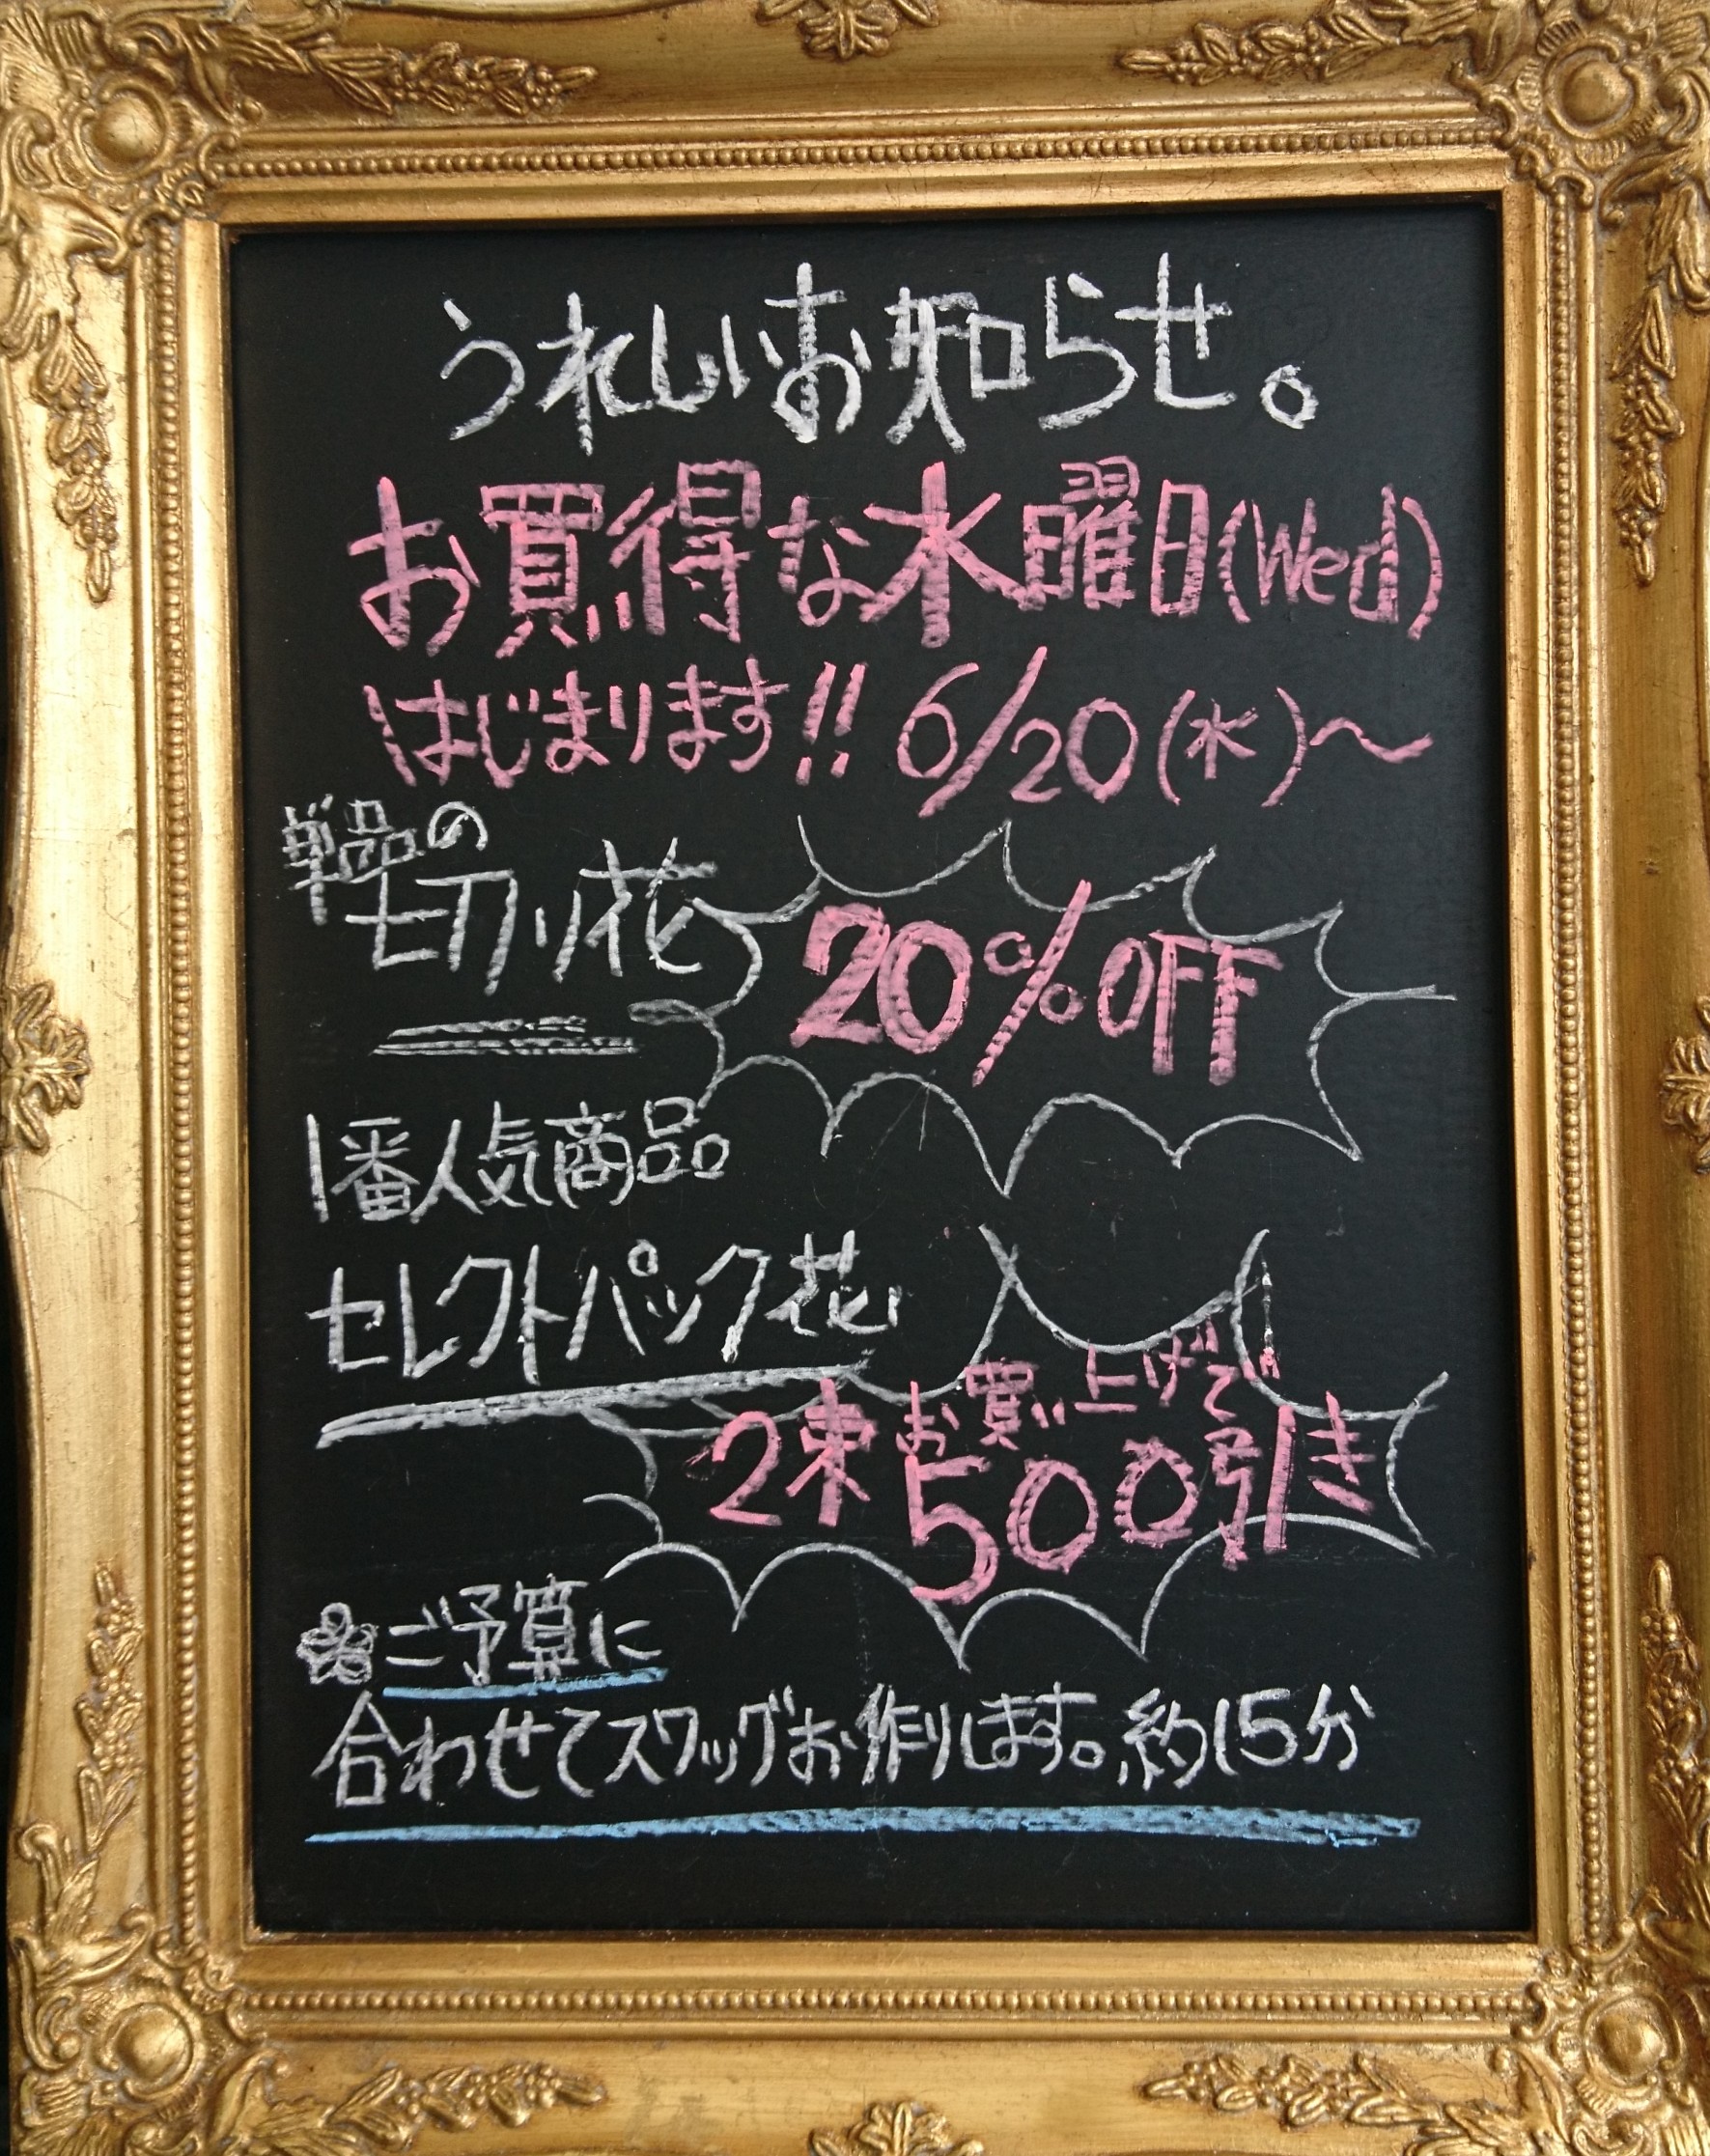 うれしいお知らせ。
お買得な水曜日(Wed)
はじまります!! 6/20(水)〜
単品の
切り花
20%OFF
1番人気商品
セレクトパック花
2束お買い上げで
500引き
ご予算に
合わせてスワッグお作りします。約15分